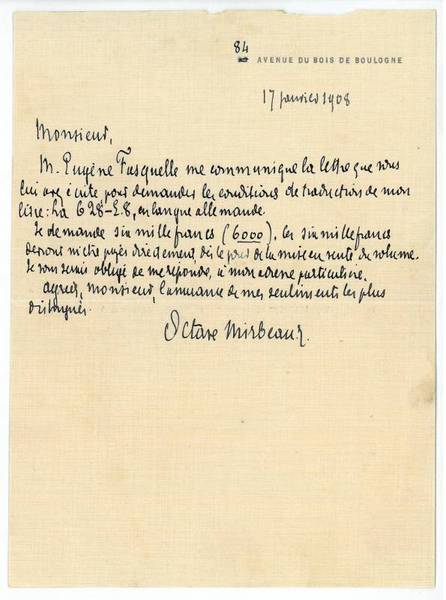 84
AVENUE DU BOIS DE BOULOGNE
17 janvier 1908
Monsieur,
M. Eugène Fasquelle me communique la lettre que vous
lui avez écrite pour demander les conditions de traduction de mon
livre : La 628-E.8, en langue allemande.
Je demande six mille francs (6000). Les six mille francs
devront m'être payés directement, dès le jour de la mise en vente du volume.
Je vous serais obligé de me répondre, à mon adresse particulière.
agréez, monsieur, l'assurance de mes sentiments les plus
distingués.
Octave Mirbeau.